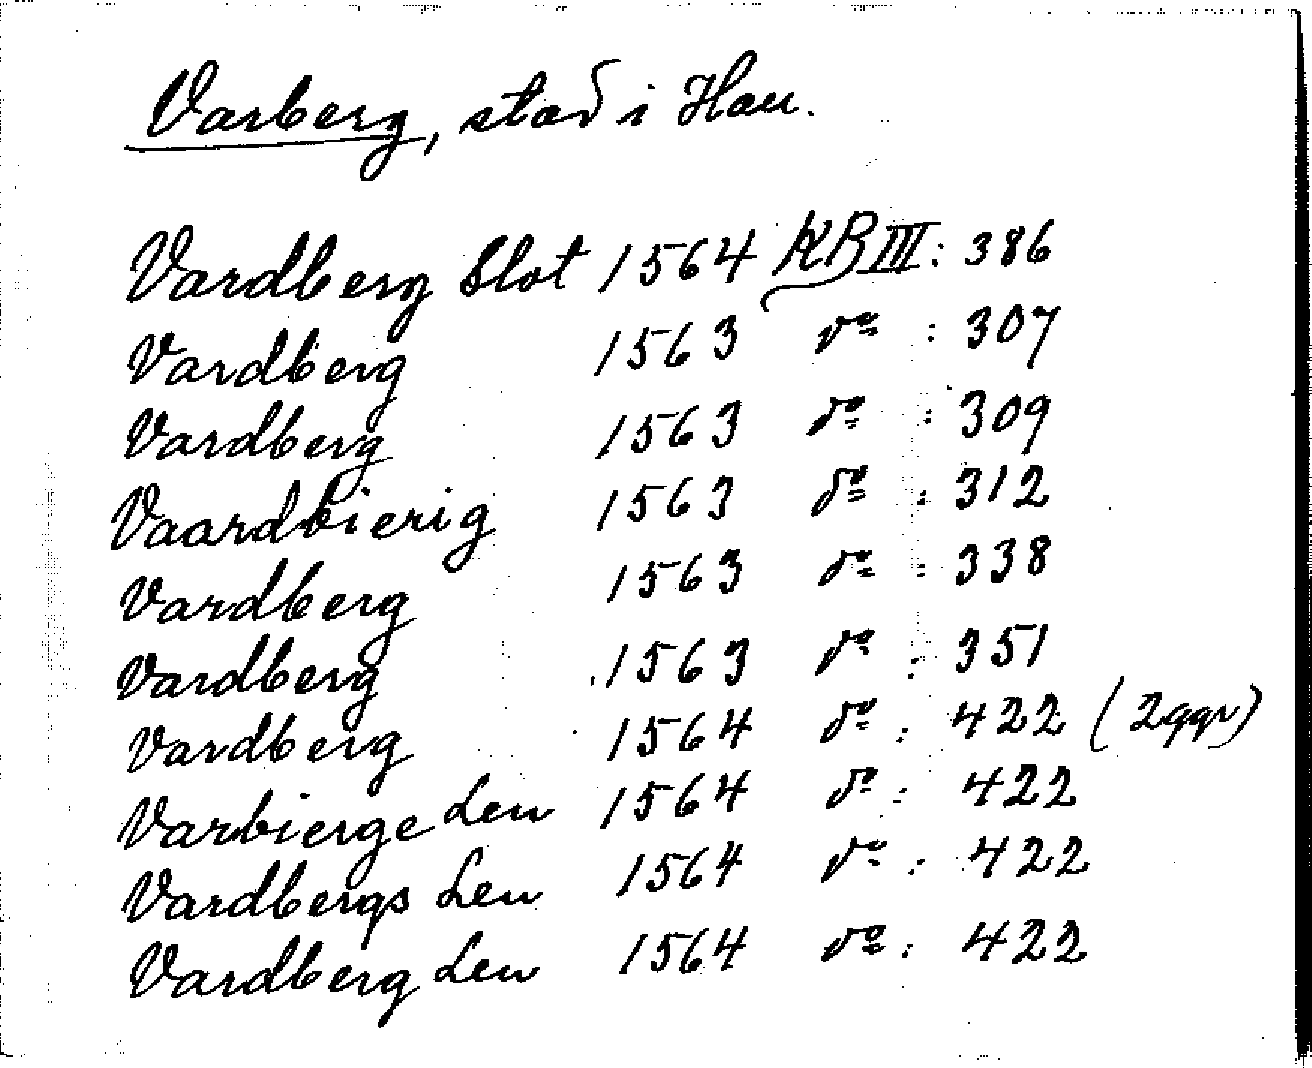 Varberg, stad i Hau.
Vardberg Slot 1564 KB III: 386
Vardberg 1563 do : 307
Vardberg 1563 do : 309
Vaardbierig 1563 do : 312
Vardberg 1563 do : 338
Vardberg 1563 do : 351
Vardberg 1564 do : 422 (2ggr)
Varbierge Len 1564 do : 422
Vardbergs Len 1564 do : 422
Vardberg Len 1564 do : 422